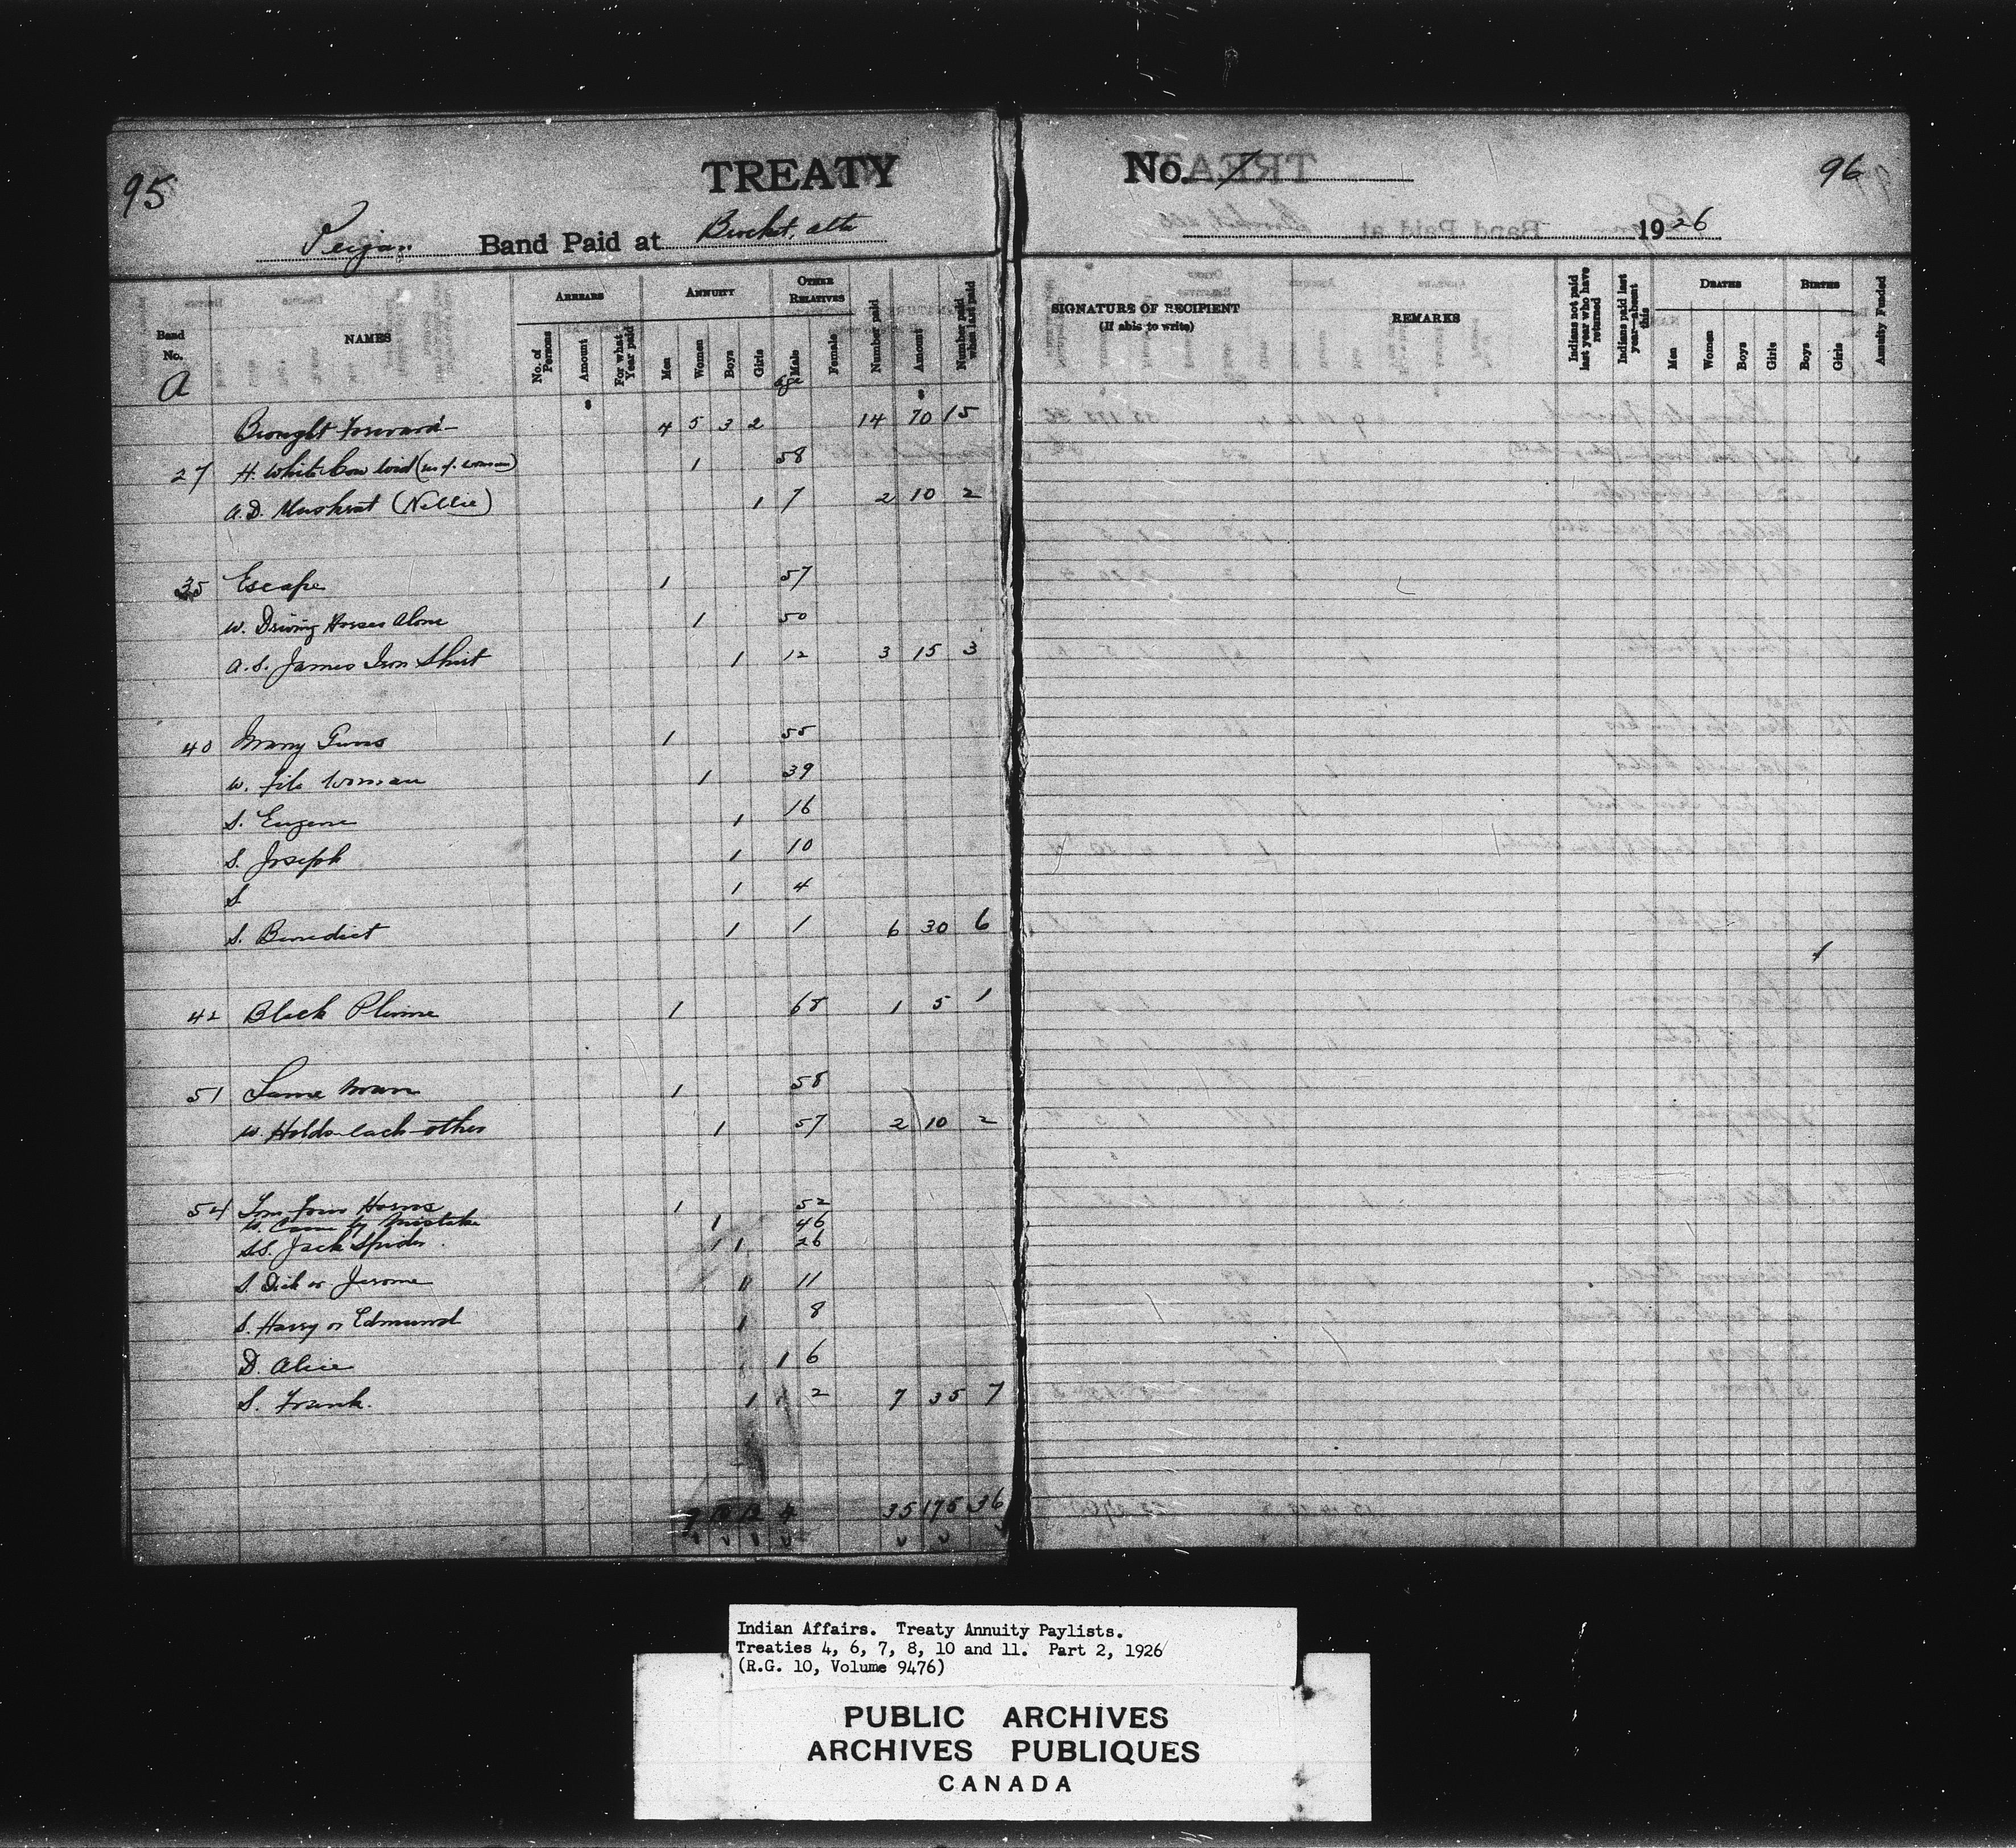 95
TREATY
No. 7
96
Peigan Band Paid at Brocket, Alta
1926
Band No.
NAMES
ARREARS
No. of Persons
Amount
For what Year paid
ANNUITY
Men
Women
Boys
Girls
OTHER RELATIVES
Male
Female
Number paid
Amount
Number paid when last paid
SIGNATURE OF RECIPIENT
(If able to write)
REMARKS
Indians not paid last year who have returned
Indians paid last year—absent this
DEATHS
Men
Women
Boys
Girls
BIRTHS
Boys
Girls
Annuity Funded
A
age
Brought Forward 4 5 3 2 14 70 15
27 H. White Cow 1 58
A.D. Muskrat (Nellie) 1 7 2 10 2
35 Escape 1 57
W. Driving Horses Alone 1 50
A.S. James Iron Shirt 1 12 3 15 3
40 Many Guns 1 55
W. Woman 1 39
S. Eugene 1 16
S. Joseph 1 10
S. 1 4
S. Benedict 1 1 6 30 6
1
42 Black Plume 1 68 1 5 1
51 Lame Man 1 58
W. Holds each other 1 57 2 10 2
54 Tom Four Horns 1 52
W. Came by Mistake 1 46
S.S. Jack Spider 1 1 26
S. Dick or Jerome 11
S. Harry or Edmund 1 8
D. Alice 1 6
S. Frank. 1 2 7 35 7
9 10 12 4 35 175 36
Indian Affairs. Treaty Annuity Paylists.
Treaties 4, 6, 7, 8, 10 and 11. Part 2, 1926
(R.G. 10, Volume 9476)
PUBLIC ARCHIVES
ARCHIVES PUBLIQUES
CANADA